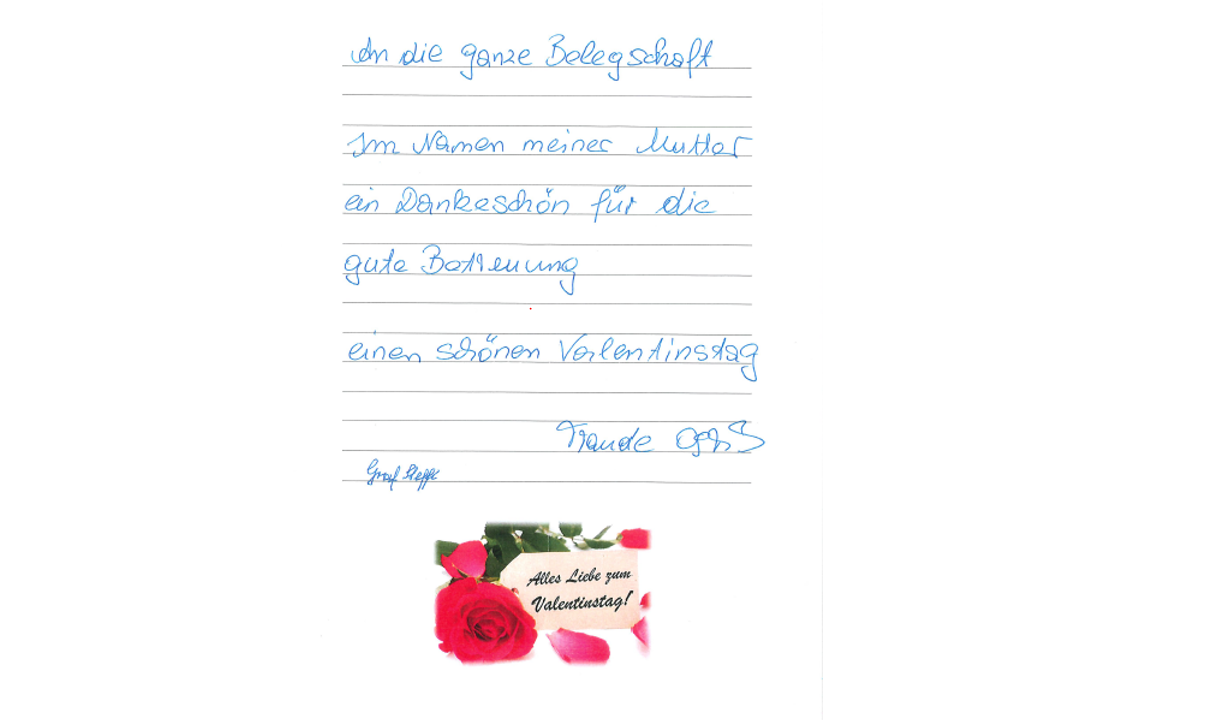 An die ganze Belegschaft
Im Namen meiner Mutter
ein Dankeschön für die
gute Betreuung
einen schönen Valentinstag
Traude
Graf Steffi
Alles Liebe zum
Valentinstag!